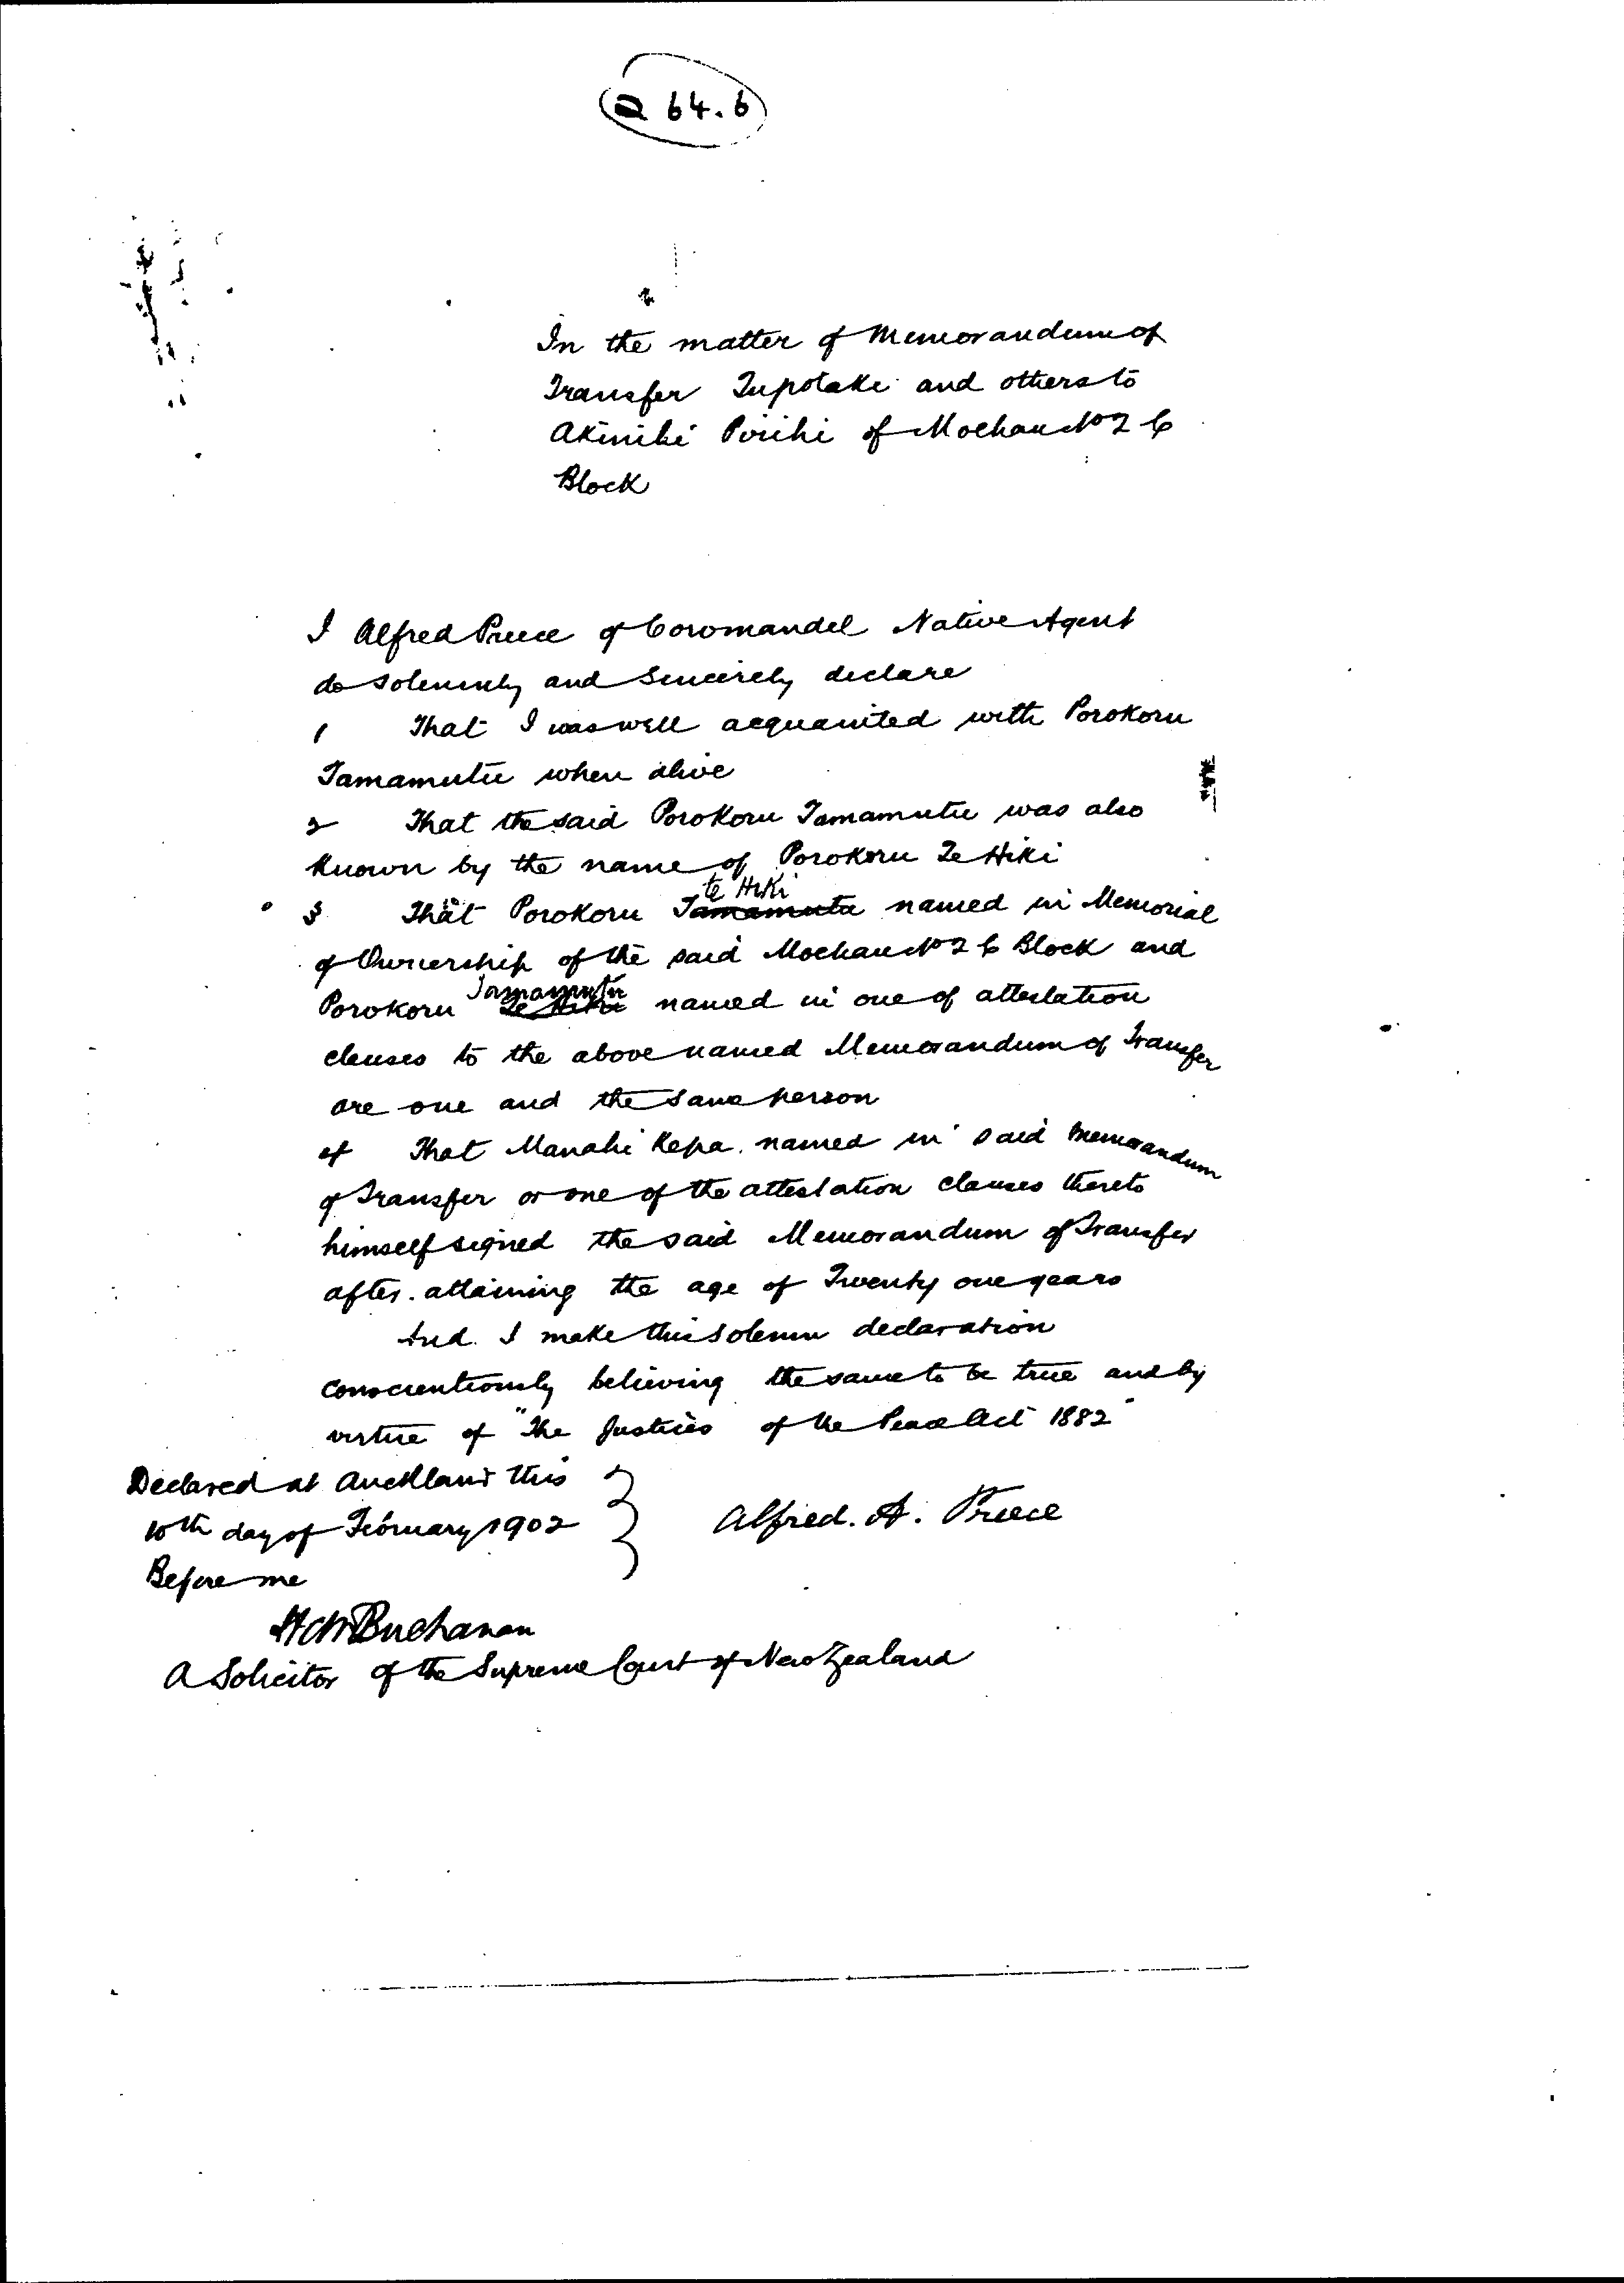 2 64.6
In the matter of Memorandum of
Transfer Tupotahi and others to
Akinihi Pirihi of Moehau No 2 C
Block
I Alfred Preece of Coromandel Native Agent
do solemnly and sincerely declare
1 That I was well acquainted with Porokoru
Tamamutu when alive
2 That the said Porokoru Tamamutu was also
known by the name of Porokoru Te Hiki
te Hiki
3 That Porokoru Tamamutu named in Memorial
of Ownership of the said Moehau No 2 C Block and
Tamamutu
Porokoru Te Hiki named in one of attestation
clauses to the above named Memorandum of Transfer
are one and the same person
4 That Manahi Kepa named in said Memorandum
of Transfer or one of the attestation clauses thereto
himself signed the said Memorandum of Transfer
after attaining the age of Twenty one years
And I make this solemn declaration
conscientiously believing the same to be true and by
virtue of "The Justices of the Peace Act 1882"
Declared at Auckland this
10th day of February 1902
Alfred. A. Preece
Before me
Buchanan
A Solicitor of the Supreme Court of New Zealand